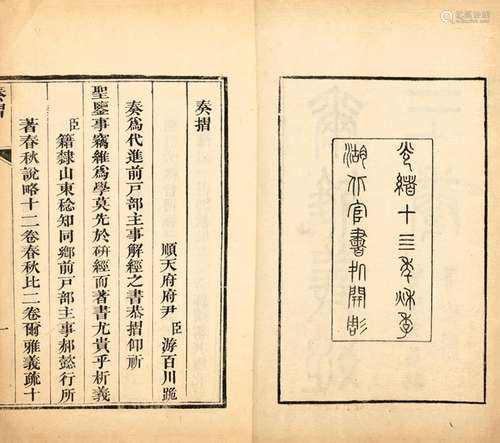 光緒十三年秋季
湖北官書処開彫
奏摺
奏摺
順天府府尹臣游百川跪
奏爲代進前戸部主事解經之書恭摺仰祈
聖鑒事竊維爲學莫先於研經而著書尤貴乎析義
臣籍隸山東稔知同鄉前戸部主事郝懿行所
著春秋説略十二卷春秋比二卷爾雅義疏十
一